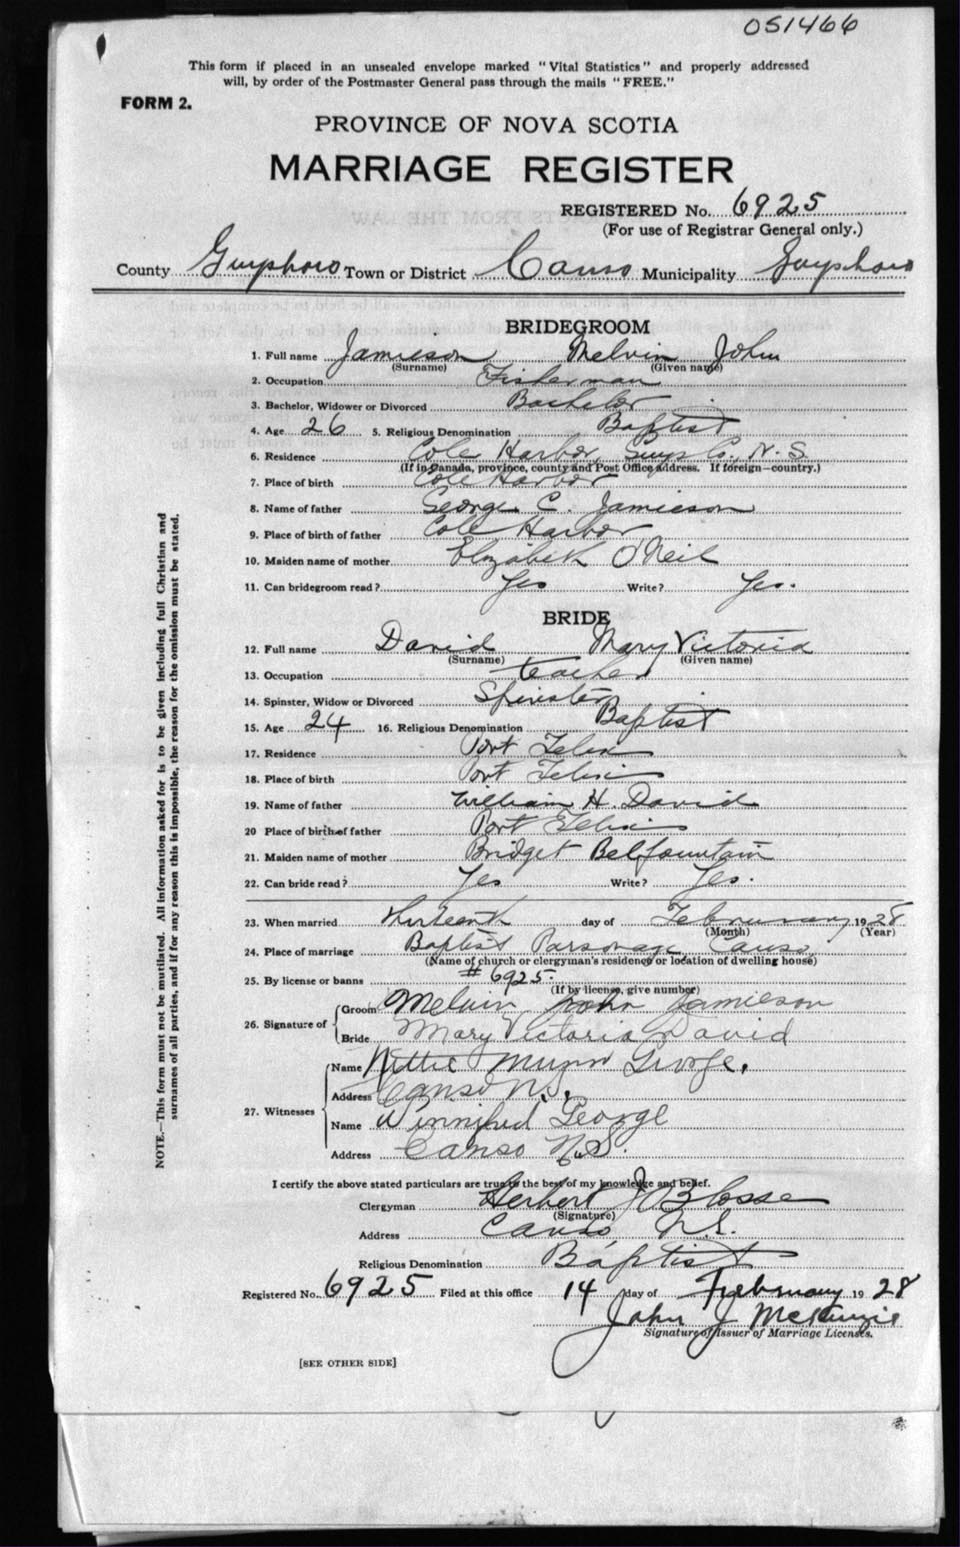 051466
This form if placed in an unsealed envelope marked "Vital Statistics" and properly addressed
will, by order of the Postmaster General pass through the mails "FREE."
FORM 2.
PROVINCE OF NOVA SCOTIA
MARRIAGE REGISTER
REGISTERED No. 6925
(For use of Registrar General only.)
County Guysboro Town or District Canso Municipality Guysboro
BRIDEGROOM
1. Full name Jamieson Melvin John
(Surname) (Given name)
2. Occupation Fisherman
3. Bachelor, Widower or Divorced Bachelor
4. Age 26 5. Religious Denomination Baptist
6. Residence Cole Harbor, Guys Co., N.S.
(If in Canada, province, county and Post Office address. If foreign—country.)
7. Place of birth Cole Harbor
8. Name of father George C. Jamieson
9. Place of birth of father Cole Harbor
10. Maiden name of mother Elizabeth O'Neil
11. Can bridegroom read? Yes Write? Yes.
BRIDE
12. Full name David Mary Victoria
(Surname) (Given name)
13. Occupation teacher
14. Spinster, Widow or Divorced Spinster
15. Age 24 16. Religious Denomination Baptist
17. Residence Port Felix
18. Place of birth Port Felix
19. Name of father William H. David
20 Place of birth of father Port Felix
21. Maiden name of mother Bridget Belfountain
22. Can bride read? Yes Write? Yes.
23. When married thirteenth day of February 1928
(Month) (Year)
24. Place of marriage Baptist Parsonage Canso
(Name of church or clergyman's residence or location of dwelling house)
25. By license or banns # 6925.
(If by license, give number)
26. Signature of Groom Melvin John Jamieson
Bride Mary Victoria David
27. Witnesses
Name Nettie Munro George.
Address Canso N.S.
Name Winnifred George
Address Canso N.S.
I certify the above stated particulars are true to the best of my knowledge and belief.
Clergyman Herbert J. Blosse
(Signature)
Address Canso N.S.
Religious Denomination Baptist
Registered No. 6925 Filed at this office 14 day of February 1928
John J McKenzie
Signature of Issuer of Marriage Licenses.
[SEE OTHER SIDE]
NOTE.—This form must not be mutilated. All information asked for is to be given including full Christian and
surnames of all parties, and if for any reason this is impossible, the reason for the omission must be stated.